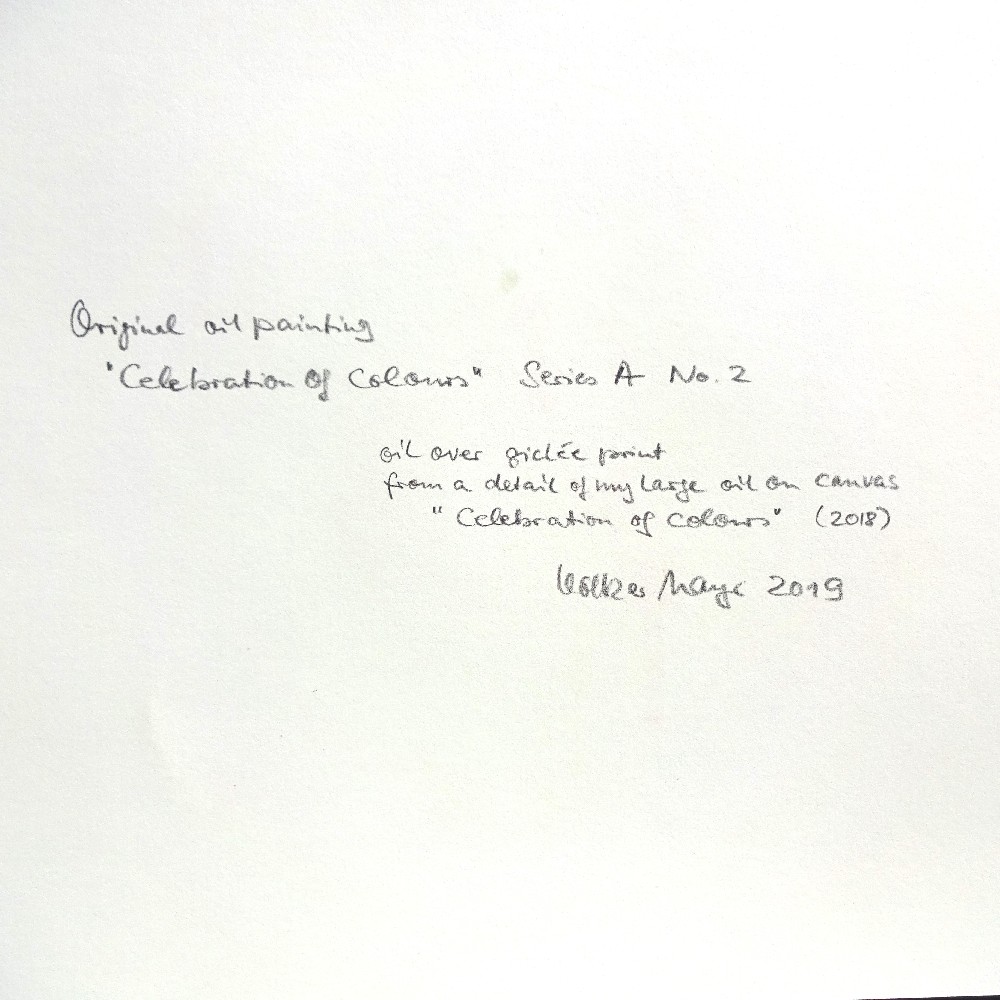 Original oil painting
"Celebration of Colours" Series A No. 2
oil over giclée print
from a detail of my large oil on canvas
"Celebration of Colours" (2018)
Volker Mayr 2019